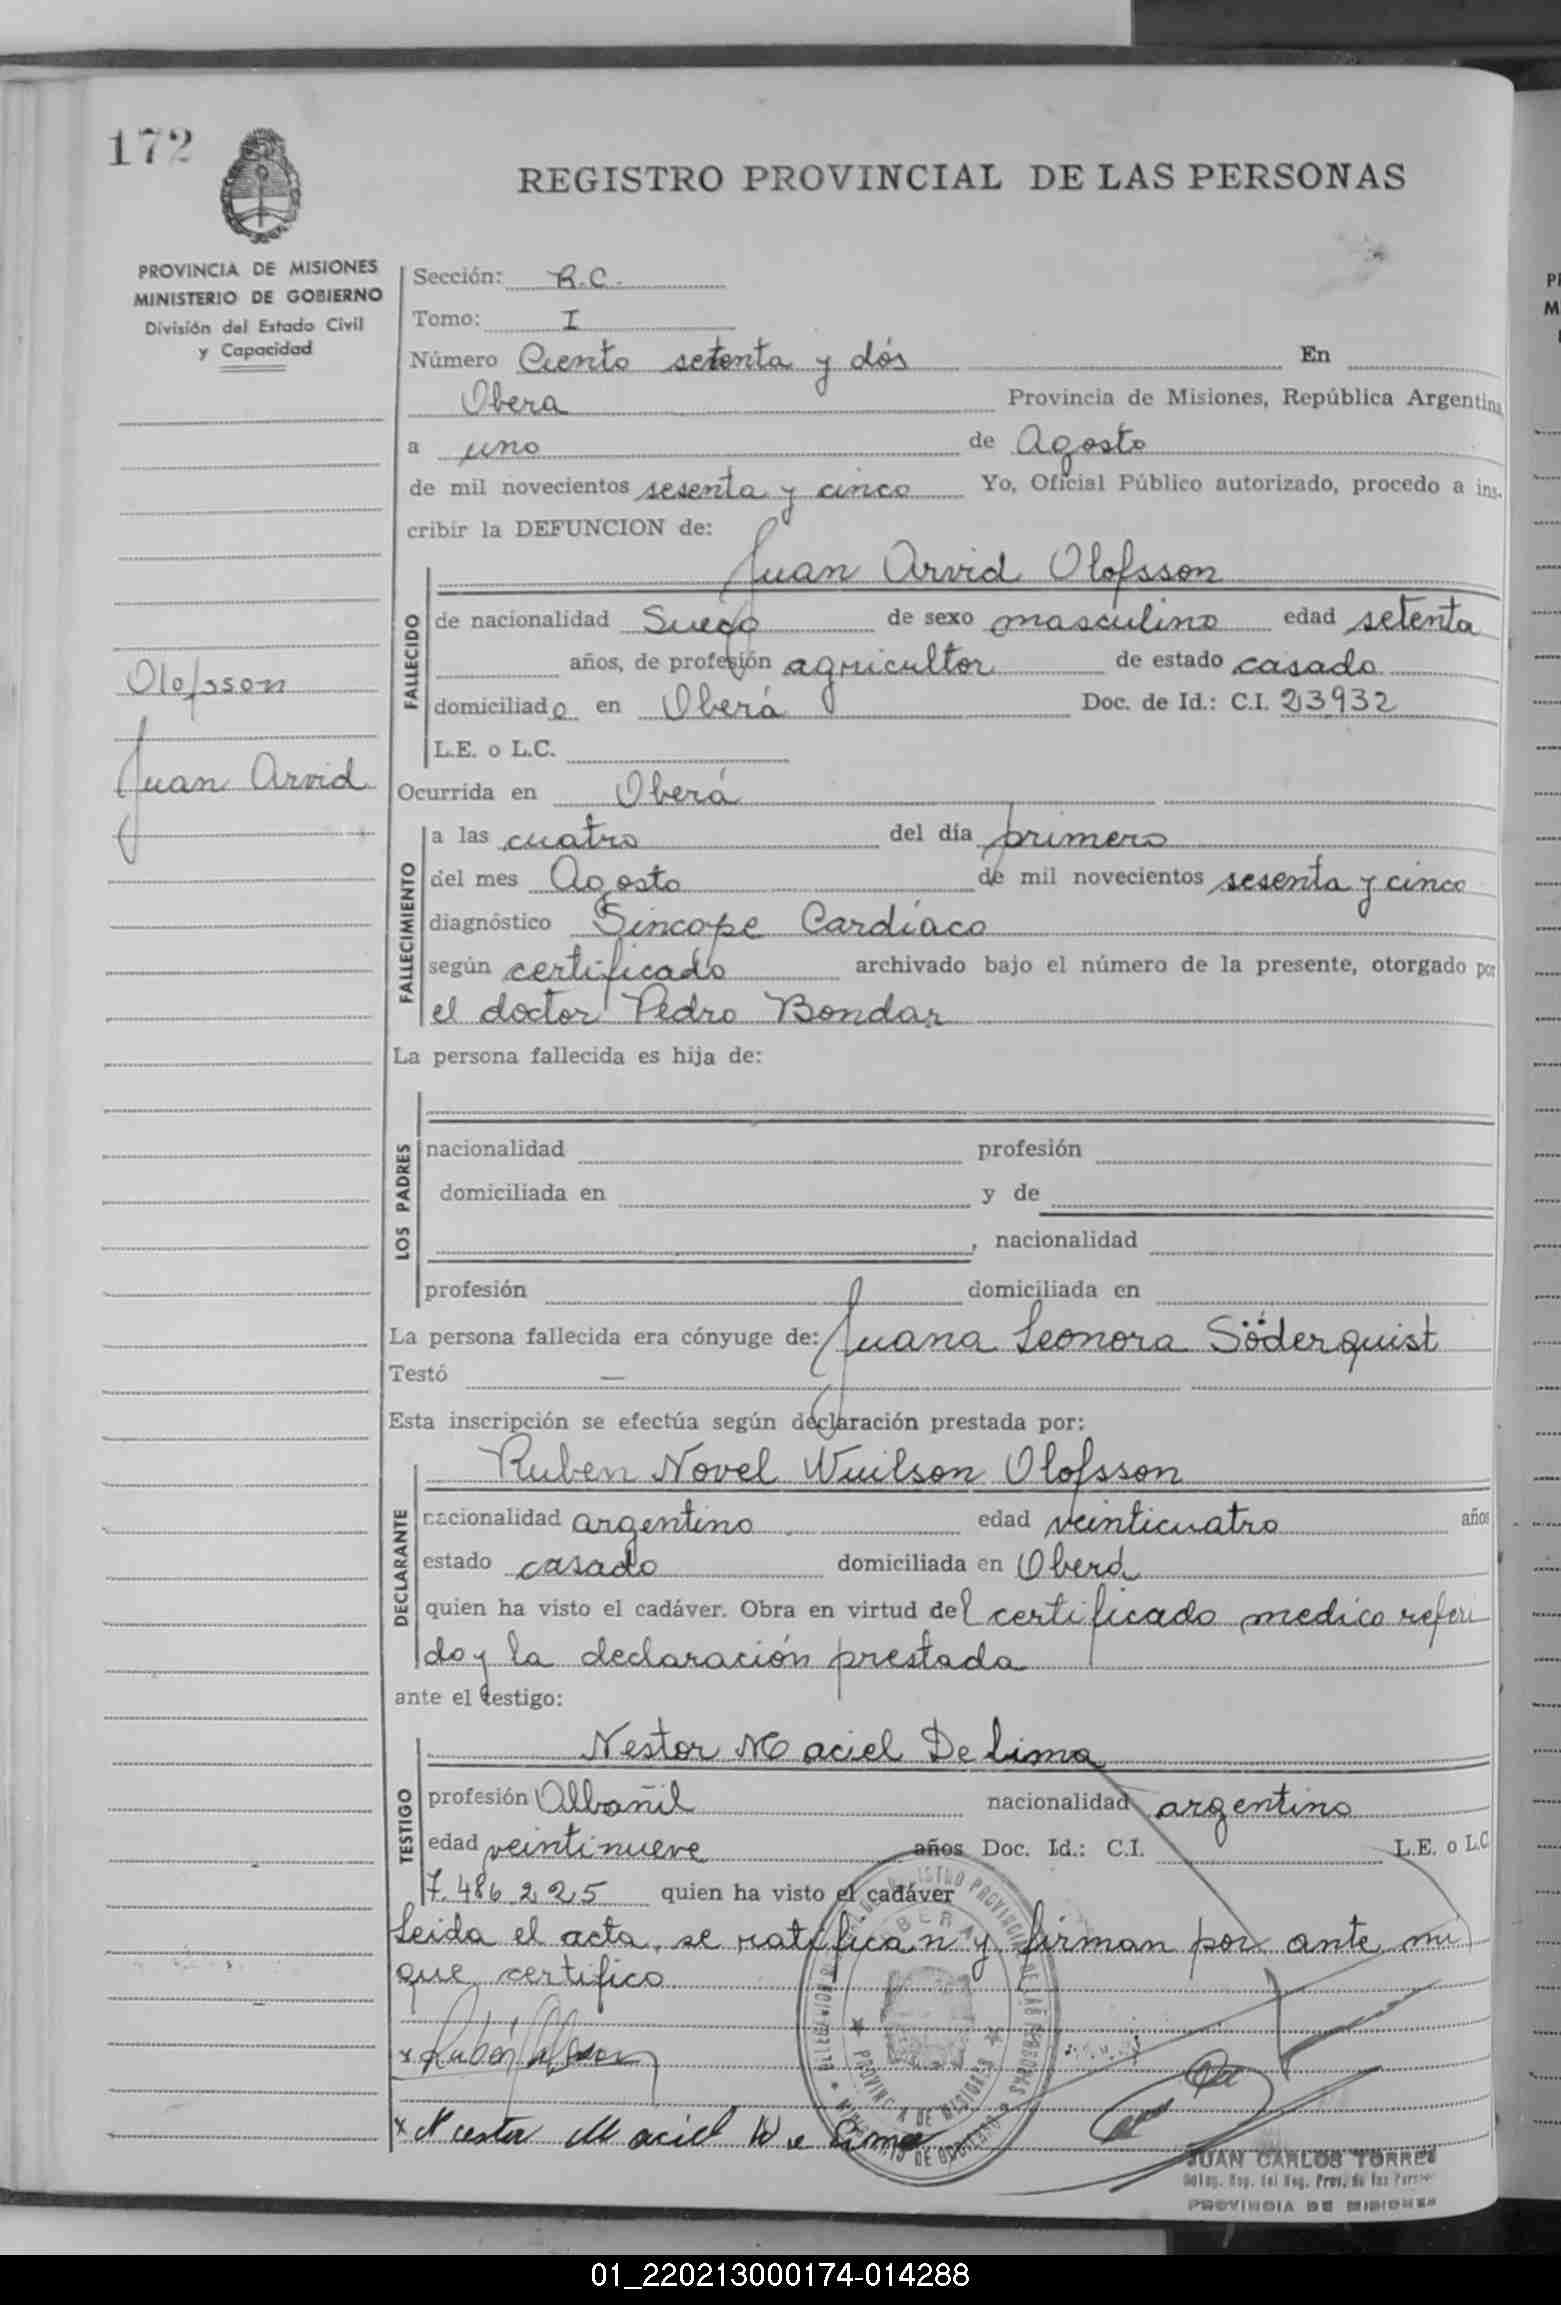 172
REGISTRO PROVINCIAL DE LAS PERSONAS
PROVINCIA DE MISIONES
MINISTERIO DE GOBIERNO
División del Estado Civil
y Capacidad
Sección: R.C.
Tomo: I
Número Ciento setenta y dós En
Obera Provincia de Misiones, República Argentina
a uno de Agosto
de mil novecientos sesenta y cinco Yo, Oficial Público autorizado, procedo a ins-
cribir la DEFUNCION de:
Juan Arvid Olofsson
FALLECIDO
de nacionalidad Sueco de sexo masculino edad setenta
años, de profesión agricultor de estado casado
domiciliado en Oberá Doc. de Id.: C.I. 23932
L.E. o L.C.
Olofsson
Juan Arvid
Ocurrida en Oberá
FALLECIMIENTO
a las cuatro del día primero
del mes Agosto de mil novecientos sesenta y cinco
diagnóstico Sincope Cardíaco
según certificado archivado bajo el número de la presente, otorgado por
el doctor Pedro Bondar
La persona fallecida es hija de:
LOS PADRES
nacionalidad profesión
domiciliada en y de
, nacionalidad
profesión domiciliada en
La persona fallecida era cónyuge de: Juana Leonora Söderquist
Testó —
Esta inscripción se efectúa según declaración prestada por:
Ruben Novel Wuilson Olofsson
DECLARANTE
nacionalidad argentino edad veinticuatro años
estado casado domiciliada en Oberá
quien ha visto el cadáver. Obra en virtud del certificado medico referi
do y la declaración prestada
ante el testigo:
Nestor Maciel De lima
TESTIGO
profesión Albañil nacionalidad argentino
edad veintinueve años Doc. Id.: C.I. L.E. o L.C
7.486.225 quien ha visto el cadáver
Leida el acta, se ratifican y firman por ante mi
que certifico
OBERA
PROVINCIA DE MISIONES
MINISTERIO DE GOBIERNO
x Rubén Olofsson
x Nestor Maciel De Lima
JUAN CARLOS TORRES
PROVINCIA DE MISIONES
01_220213000174-014288